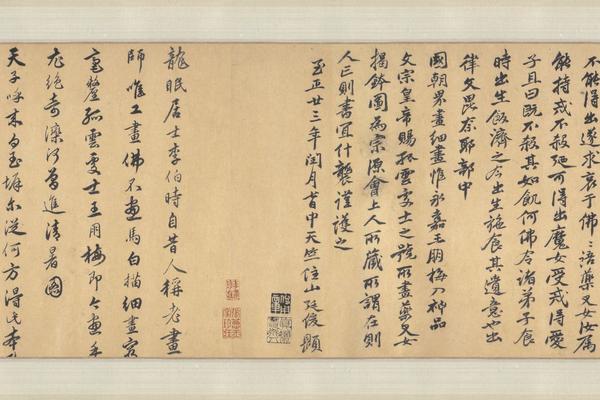 不能得出遂求哀于佛〻語藥叉女汝爲
能持戒不殺冤可得出魔女受戒得愛
子且曰既不殺其如飢何佛令諸弟子食
時出生飯濟之今出生施食其遺意也出
律文毘奈耶部中
國朝界畫細畫惟永嘉王朋梅入神品
文宗皇帝賜孤雲處士之號所畫藥叉女
揭鉢圖爲宗源會上人所藏所謂在則
人亡則書宜什襲謹護之
至正廿三年閏月旹中天竺住山廷俊題
龍眠居士李伯時自昔人稱老畫
師唯工畫佛不畫馬白描細畫容
毫釐孤雲處士王用梅即今畫手
尤絶奇灤河曾進清暑圖
天子呼來白玉墀尔從何方得此本